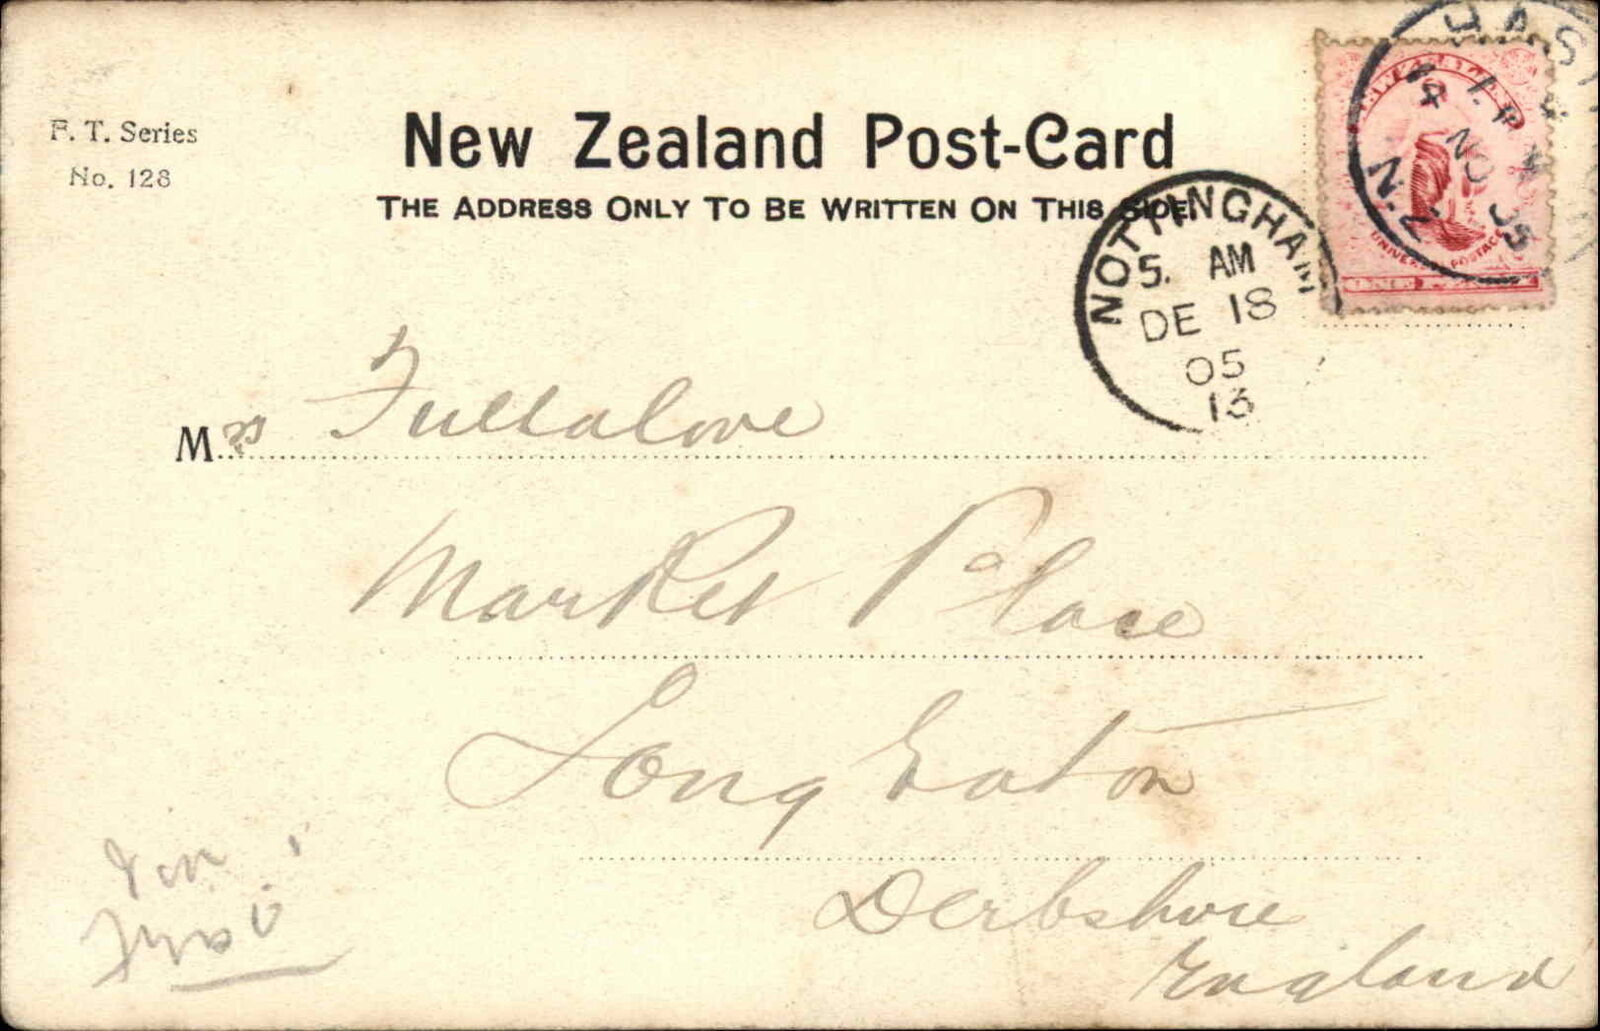 F. T. Series
No. 128
New Zealand Post-Card
THE ADDRESS ONLY TO BE WRITTEN ON THIS SIDE.
NOTTINGHAM
5. AM
DE 18
05
13
N.Z
18 NO 05
UNIVERSAL POSTAGE
ONE PENNY
Mrs Fullalove
Market Place
Long Eaton
Derbshire
England